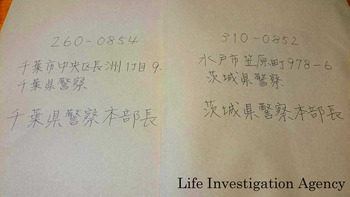 260-0854
千葉市中央区長洲1丁目9.
千葉県警察
千葉県警察本部長
310-0852
水戸市笠原町978-6
茨城県警察
茨城県警察本部長
Life Investigation Agency